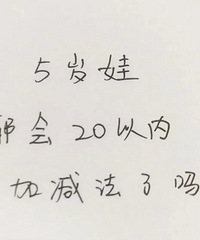 5岁娃
都会20以内
加减法了吗